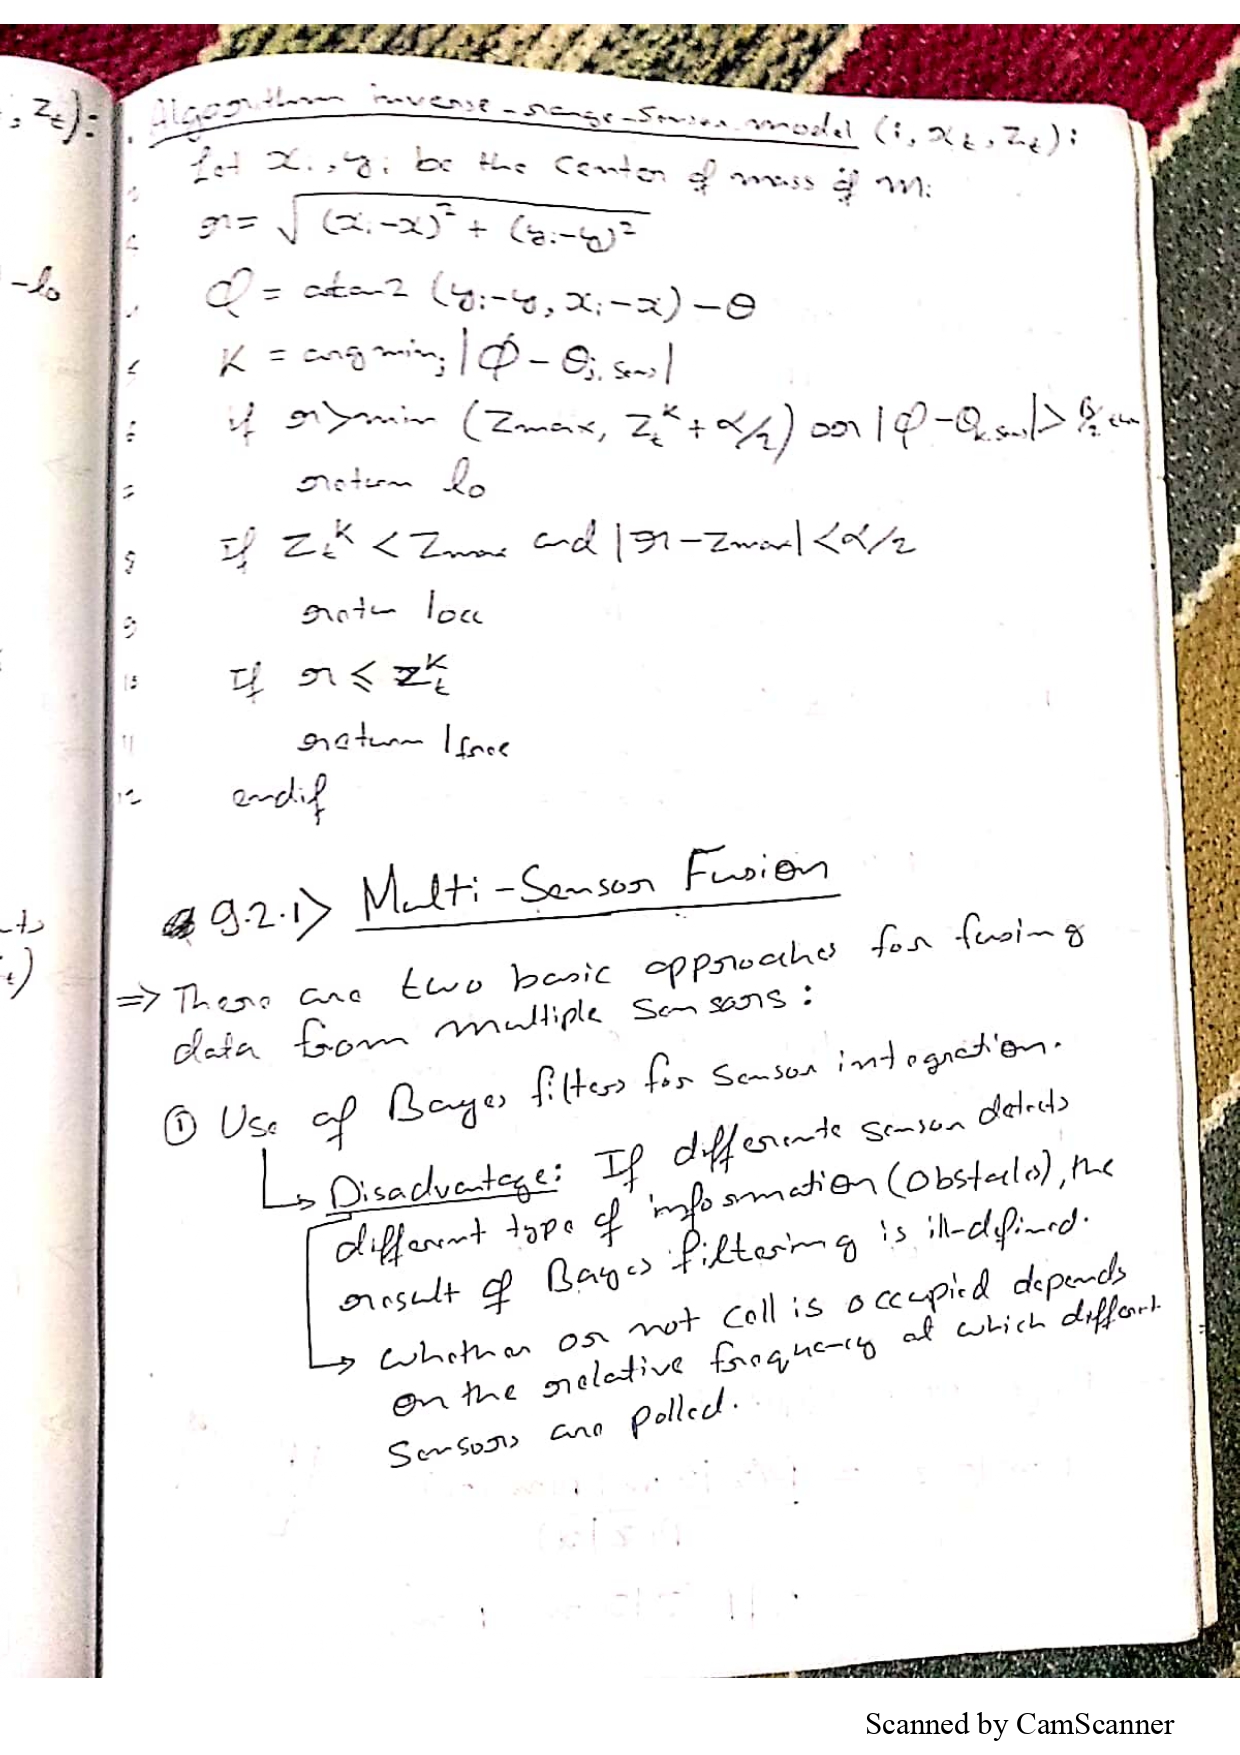 , z_t):
-l_0
Algorithm inverse-range-sensor-model (i, x_t, z_t):
Let x_i, y_i be the center of mass of m_i
r = √((x_i-x)² + (y_i-y)²)
φ = atan2 (y_i-y, x_i-x) - θ
K = argmin_j |φ - θ_j,sens|
if r > min (Z_max, Z_t^K + α/2) or |φ - θ_k,sens| > β/2 then
return l_0
If Z_t^K < Z_max and |r - Z_max| < α/2
retun l_occ
If r ≤ Z_t^K
return l_free
endif
9.2.1> Multi-Sensor Fusion
⇒ There are two basic approaches for fusing
data from multiple sensors:
① Use of Bayes filters for sensor integration.
↳ Disadvantage: If differente sensor detects
different type of information (obstacles), the
result of Bayes filtering is ill-defined.
→ Whether or not cell is occupied depends
on the relative frequency at which different
sensors are polled.
Scanned by CamScanner